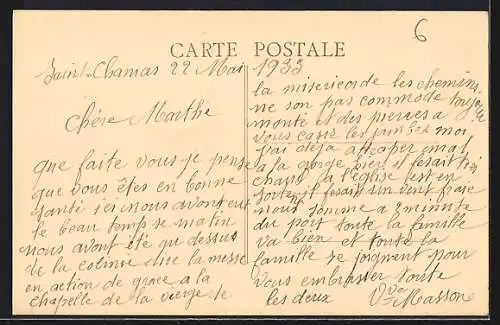 6
CARTE POSTALE
Saint-Chamas 22 Mai 1933
Chére Marthe
que faite vous je pense
que vous êtes en bonne
santé ici nous avont eut
le beau temp se matin
nous avont été au dessus
de la colinie dire la messe
en action de grace a la
chapelle de la vierge de
la misericorde les chemins
ne son pas commode toujour
monté et des pierres a
vous cassé les jambes moi
j'ai deja attraper mal
a la gorge hier il fesait tres
chaud a l'eglise est en
sortent il fesait un vent frais
nous somme a 2 minute
du port toute la famille
va bien et toute la
famille se joignent pour
vous embrasser toute
les deux Vve Masson